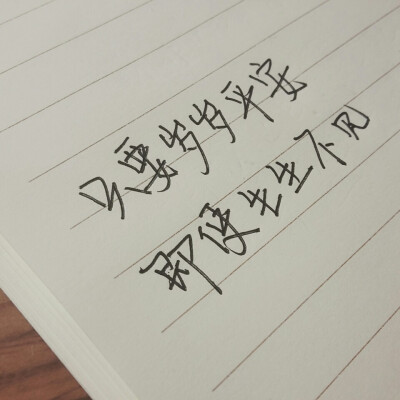 只要岁岁平安
即便生生不见